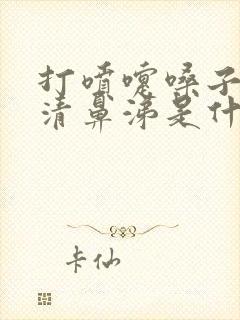 打喷嚏嗓子
清鼻涕是什
卡仙